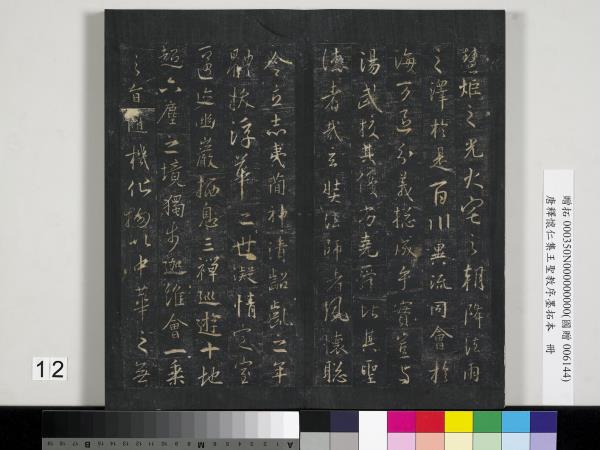 慧炬之光火宅之朝降法雨
之澤於是百川異流同會於
海万區分義総成乎實豈与
湯武挍其優劣堯舜比其聖
德者哉玄奘法師者夙懷聡
令立志夷簡神清齠齔之年
體拔浮華之世凝情定室
匿迹幽巖栖息三禪巡遊十地
超六塵之境獨步迦維會一乘
之旨隨機化物以中華之無
贈拓 000350N000000000(國贈 006144)
唐釋懷仁集王聖教序墨拓本 冊
12